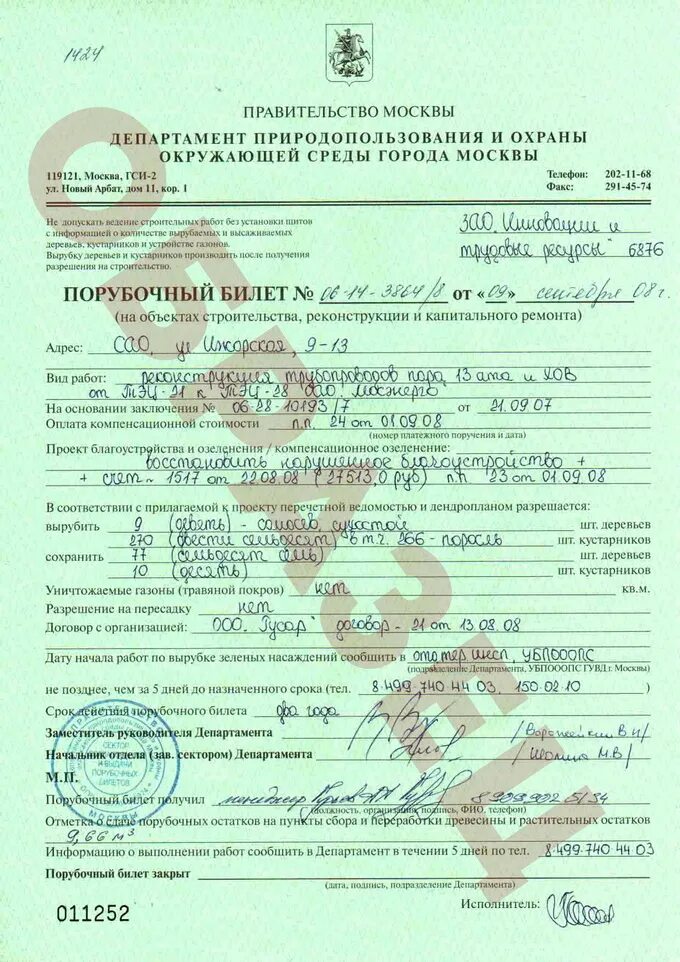 1424
ПРАВИТЕЛЬСТВО МОСКВЫ
ДЕПАРТАМЕНТ ПРИРОДОПОЛЬЗОВАНИЯ И ОХРАНЫ
ОКРУЖАЮЩЕЙ СРЕДЫ ГОРОДА МОСКВЫ
119121, Москва, ГСИ-2 Телефон: 202-11-68
ул. Новый Арбат, дом 11, кор. 1 Факс: 291-45-74
Не допускать ведение строительных работ без установки щитов
с информацией о количестве вырубаемых и высаживаемых
деревьев, кустарников и устройстве газонов.
Вырубку деревьев и кустарников производить после получения
разрешения на строительство.
ЗАО "Инновации и
трудовые ресурсы" 6876
ПОРУБОЧНЫЙ БИЛЕТ № 06-14-3864/8 от «09» сентября 08 г.
(на объектах строительства, реконструкции и капитального ремонта)
Адрес: САО, ул Ижорская, 9-13
Вид работ: реконструкция трубопроводов пара 13 ата и ХОВ
от ТЭЦ-21 к ТЭЦ-28 ОАО "Мосэнерго"
На основании заключения № 06-28-10193/7 от 21.09.07
Оплата компенсационной стоимости п.п. 24 от 01.09.08
(номер платежного поручения и дата)
Проект благоустройства и озеленения / компенсационное озеленение:
восстановить нарушенное благоустройство +
+ счет ~ 1517 от 22.08.08 (27513,0 руб) п.п 23 от 01.09.08
В соответствии с прилагаемой к проекту перечетной ведомостью и дендропланом разрешается:
вырубить 9 (девять) - самосев, сухостой шт. деревьев
270 (двести семьдесят) в т.ч. 266 - поросль шт. кустарников
сохранить 77 (семьдесят семь) шт. деревьев
10 (десять) шт. кустарников
Уничтожаемые газоны (травяной покров) нет кв.м.
Разрешение на пересадку нет
Договор с организацией: ООО "Гусар" договор - 21 от 13.08.08
Дату начала работ по вырубке зеленых насаждений сообщить в УБПОООПС
(подразделение Департамента, УБПОООПС ГУВД г. Москвы)
не позднее, чем за 5 дней до назначенного срока (тел. 8.499.740 44 03, 150.02.10 )
Срок действия порубочного билета два года
Заместитель руководителя Департамента
Начальник отдела (зав. сектором) Департамента
М.П.
СЕКТОР
ВЫДАЧИ
ПОРУБОЧНЫХ
БИЛЕТОВ
МОСКВЫ
Порубочный билет получил менеджер
(должность, организация, подпись, ФИО, телефон)
Отметка о сдаче порубочных остатков на пункты сбора и переработки древесины и растительных остатков
9,66 м³
Информацию о выполнении работ сообщить в Департамент в течении 5 дней по тел. 8.499.740 44 03
Порубочный билет закрыт
(дата, подпись, подразделение Департамента)
011252
Исполнитель:
ОБРАЗЕЦ